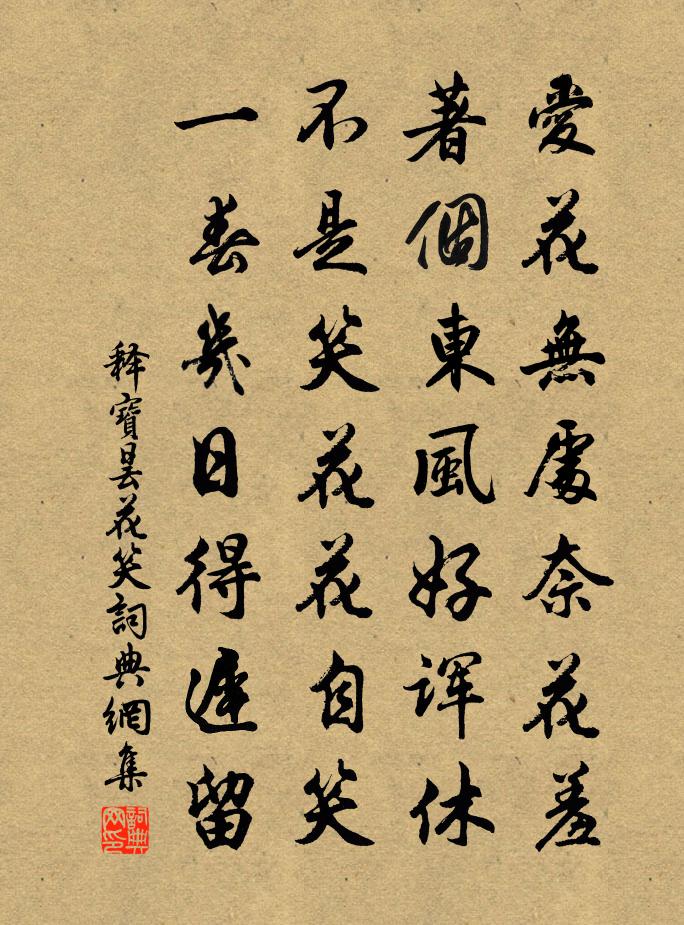 愛花無處奈花羞
著個東風好諢休
不是笑花花自笑
一春幾日得遲留
释寶曇花笑詞典網集
詞典网印